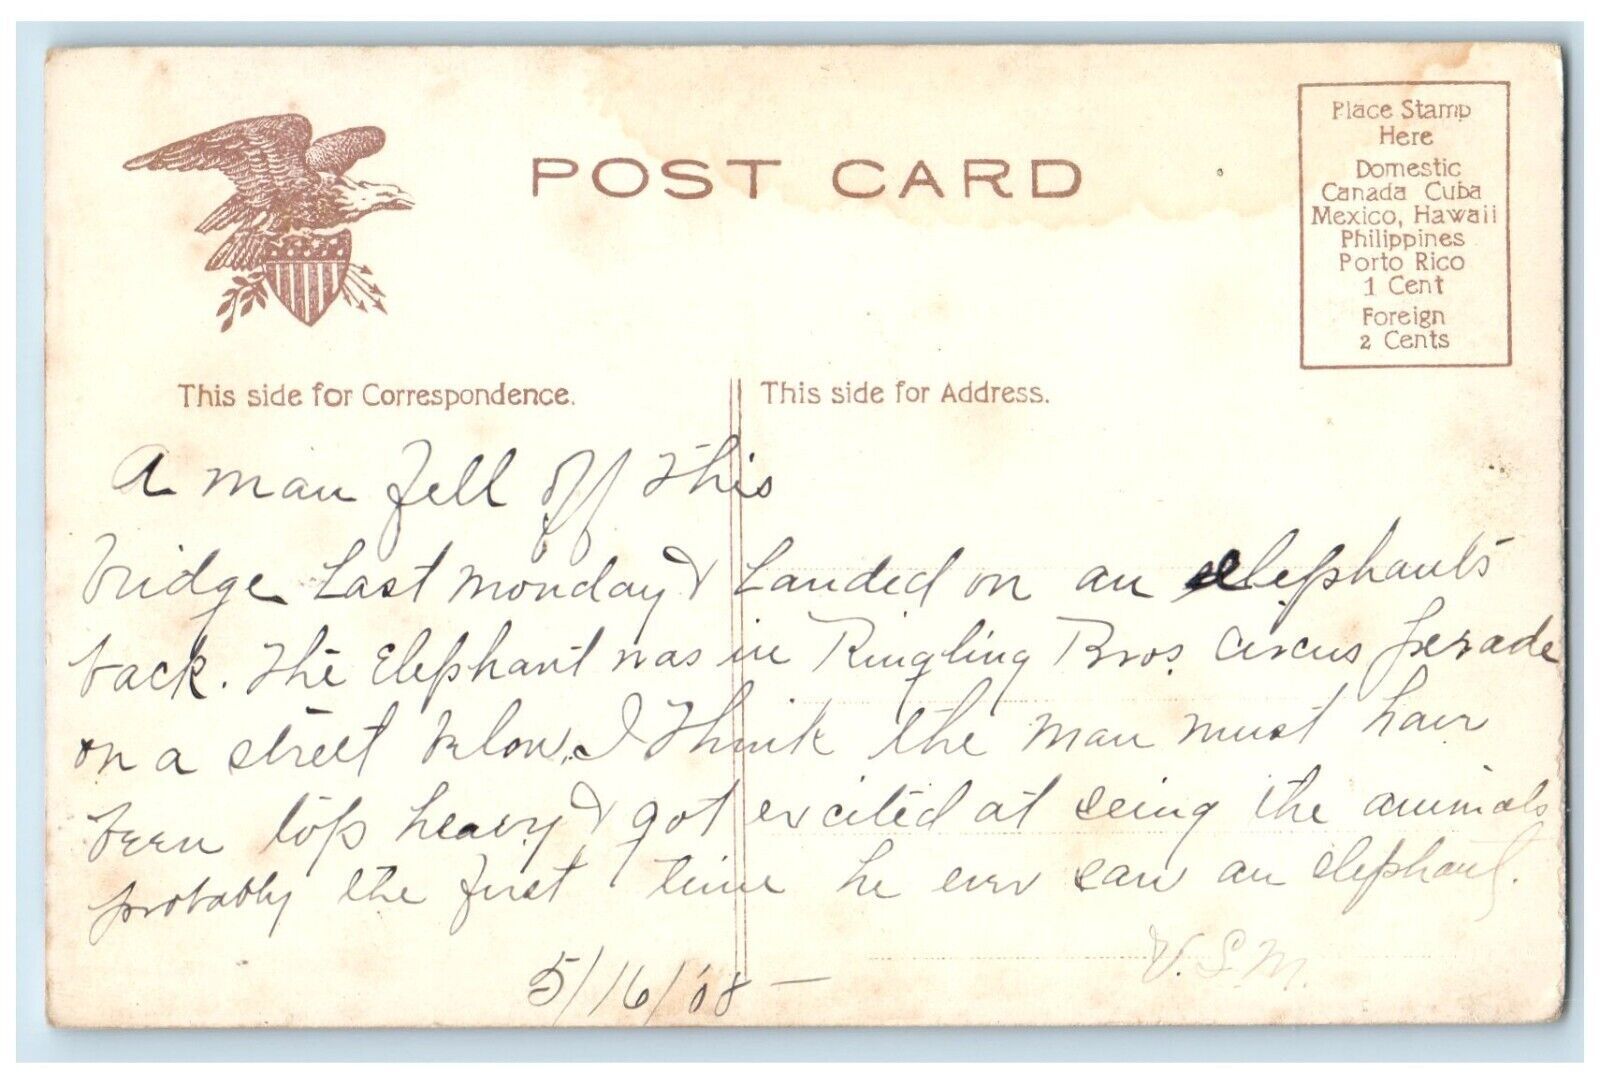 POST CARD
Place Stamp
Here
Domestic
Canada Cuba
Mexico, Hawaii
Philippines
Porto Rico
1 Cent
Foreign
2 Cents
This side for Correspondence.
This side for Address.
A man fell off this
bridge last monday & landed on an elephants
back. The Elephant was in Ringling Bros. Circus perade
on a street below. I think the man must have
been top heavy & got excited at seing the animals
probably the first time he ever saw an elephant.
V.S.M.
5/16/'08 —